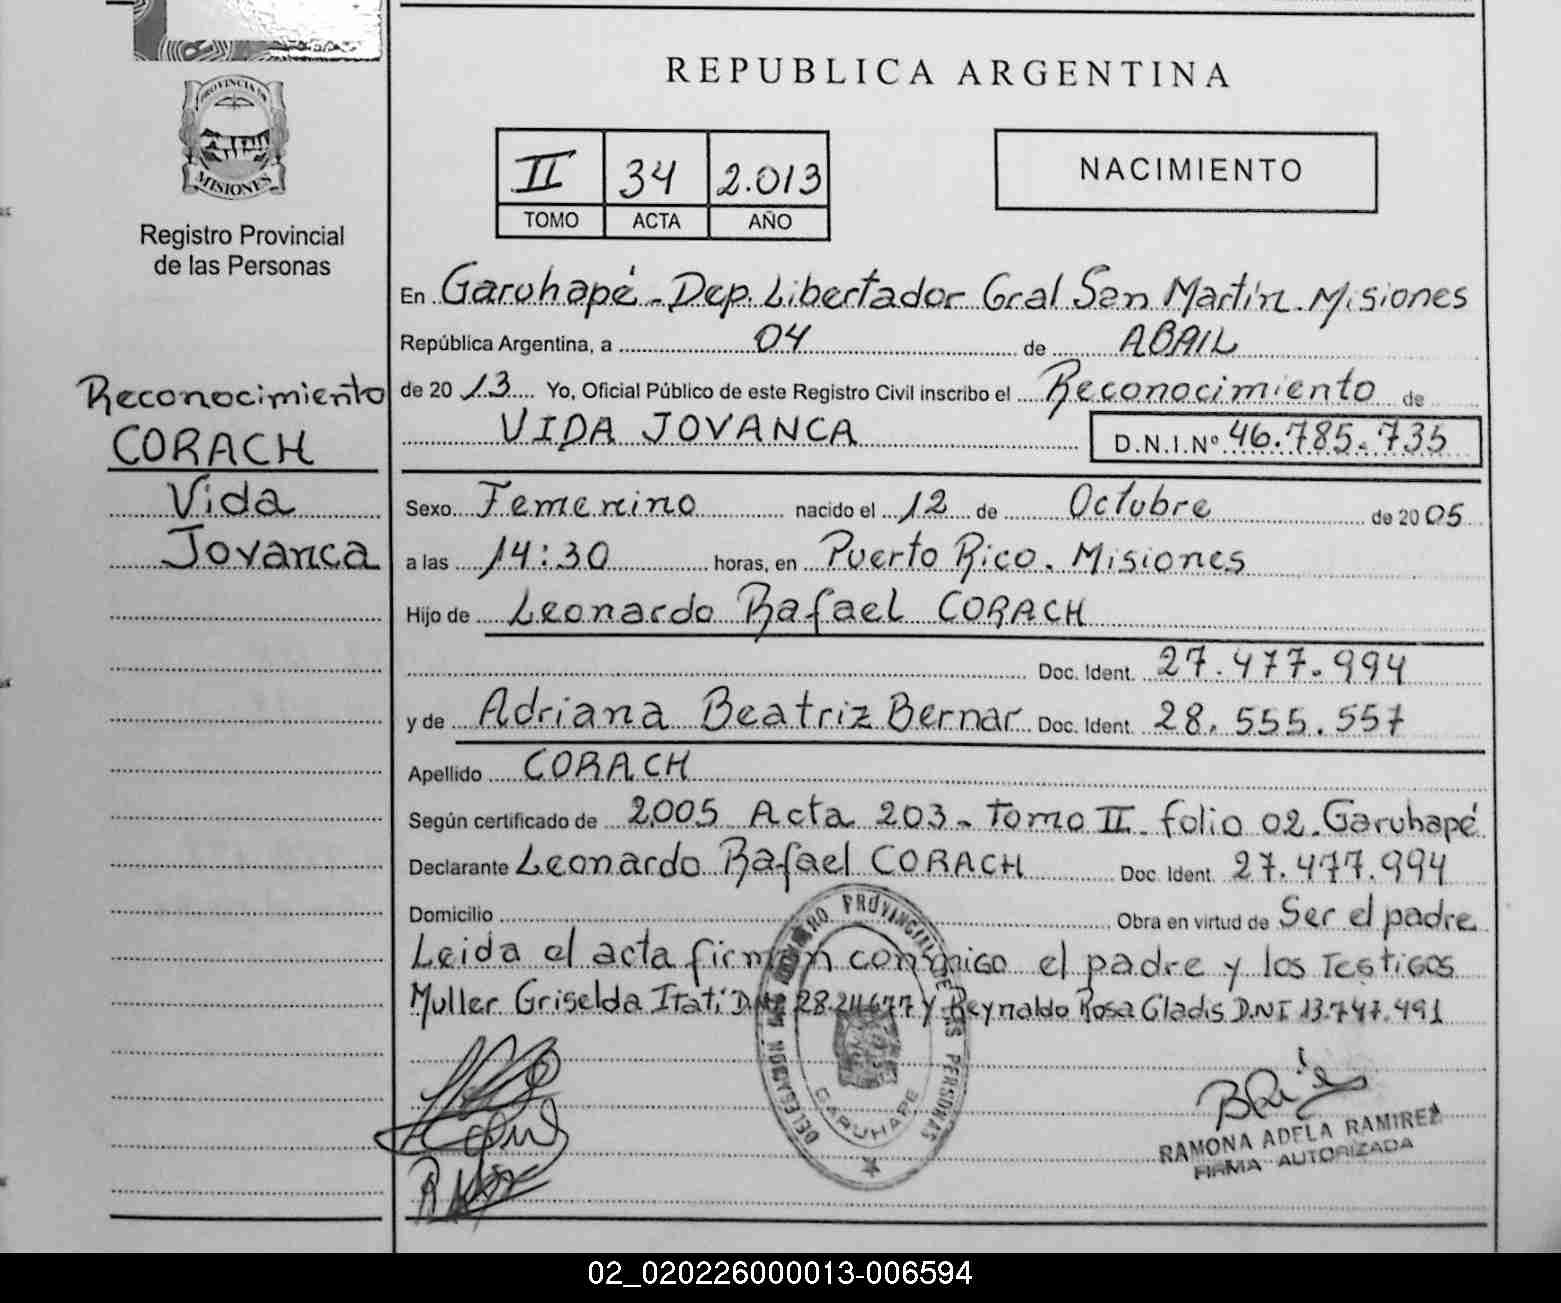 PROVINCIA DE
MISIONES
Registro Provincial
de las Personas
Reconocimiento
CORACH
Vida
Jovanca
REPUBLICA ARGENTINA
II 34 2.013
TOMO ACTA AÑO
NACIMIENTO
En Garuhapé - Dep. Libertador Gral San Martín. Misiones
República Argentina, a 04 de ABRIL
de 20 13 Yo, Oficial Público de este Registro Civil inscribo el Reconocimiento de
VIDA JOVANCA D.N.I.Nº 46.785.735
Sexo Femenino nacido el 12 de Octubre de 2005
a las 14:30 horas, en Puerto Rico. Misiones
Hijo de Leonardo Rafael CORACH
Doc. Ident. 27.477.994
y de Adriana Beatriz Bernar Doc. Ident. 28.555.557
Apellido CORACH
Según certificado de 2005 Acta 203 - Tomo II. folio 02. Garuhapé
Declarante Leonardo Rafael CORACH Doc. Ident. 27.477.994
Domicilio Obra en virtud de Ser el padre
Leida el acta firman conmigo el padre y los Testigos
Muller Griselda Itatí DNI 28.211.677 y Reynaldo Rosa Gladis DNI 13.747.491
REGISTRO PROVINCIAL DE LAS PERSONAS
DELEGACION
GARUHAPE
RAMONA ADELA RAMIREZ
FIRMA AUTORIZADA
02_020226000013-006594